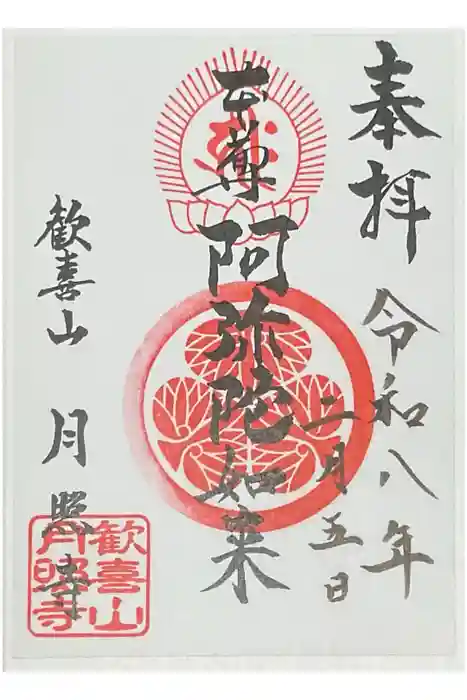 奉拝
令和八年
二月五日
本尊 阿弥陀如来
歓喜山 月照寺
歓喜山
月照寺